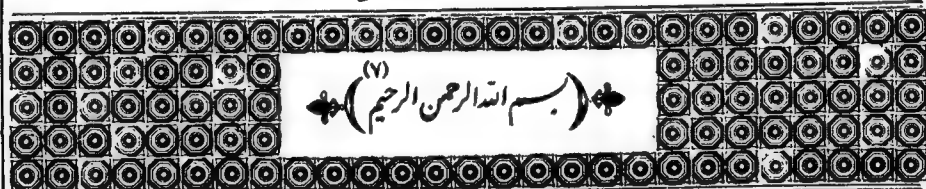 (بسم الله الرحمن الرحيم)(٧)